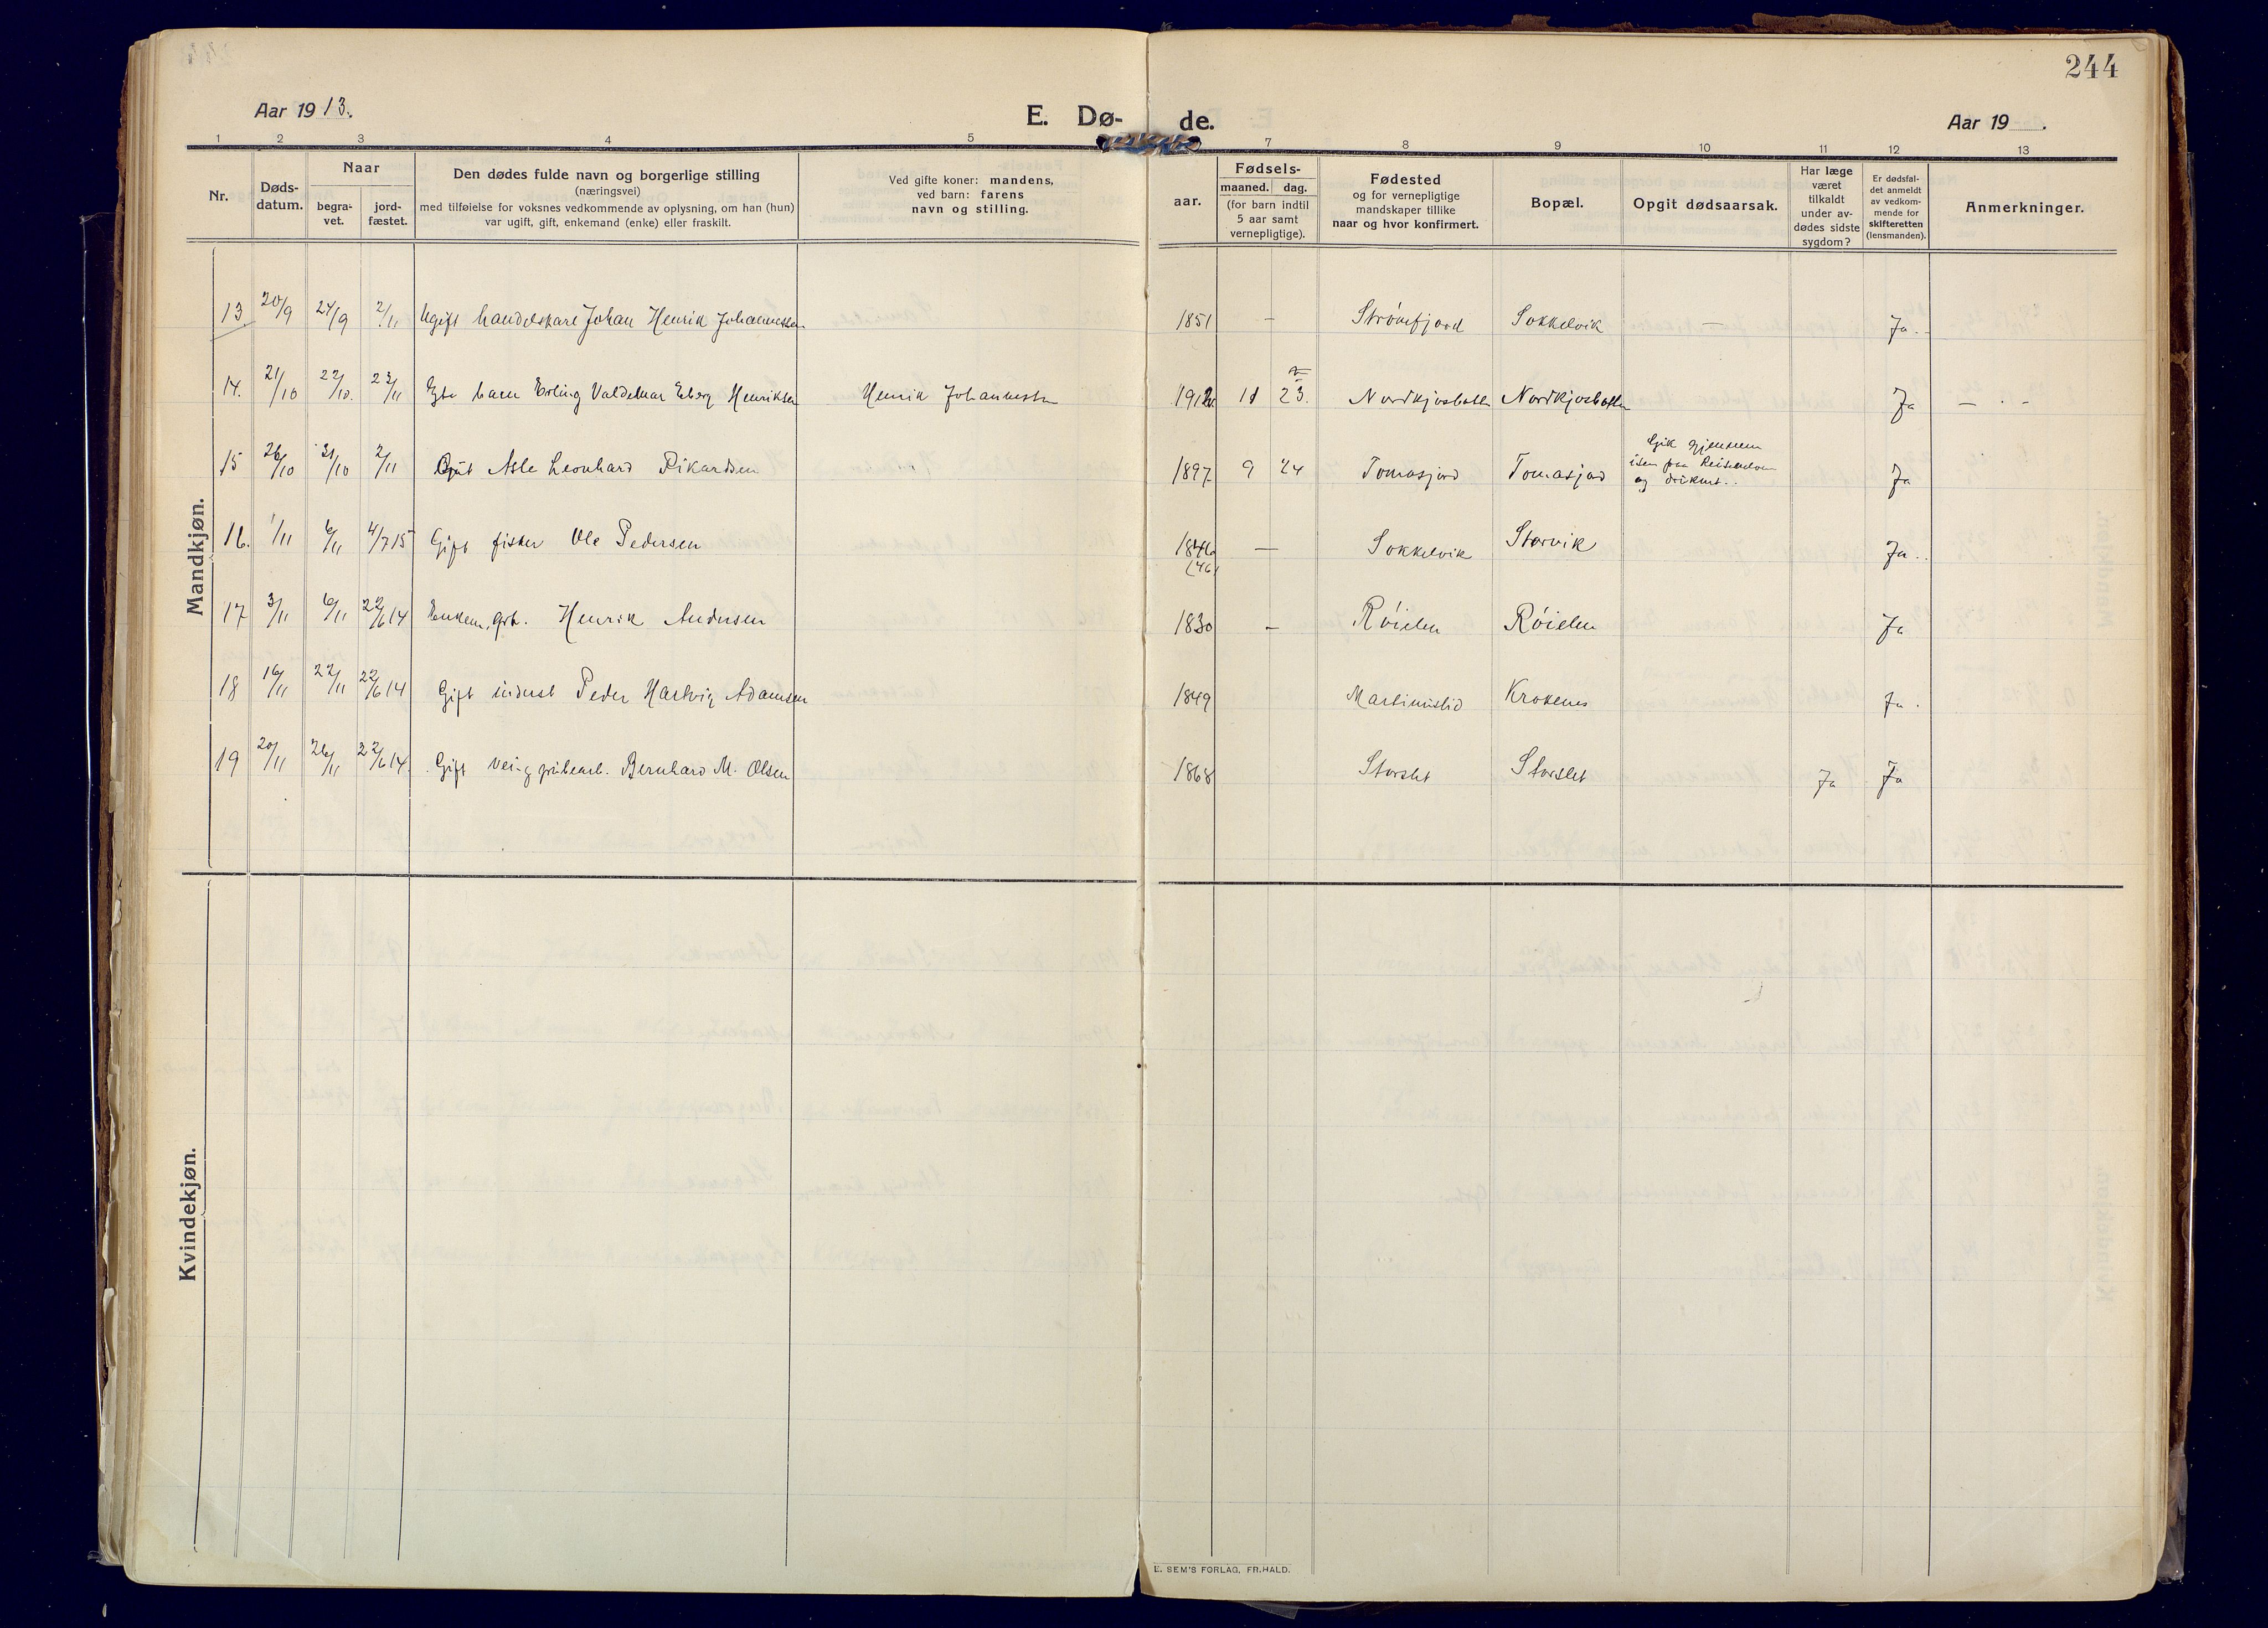 244
Aar 1913.
E. Dø-
de.
Aar 19 .
1 2 3 4 5 7 8 9 10 11 12 13
Nr.
Døds-
datum.
Naar
begra-
vet.
jord-
fæstet.
Den dødes fulde navn og borgerlige stilling
(næringsvei)
med tilføielse for voksnes vedkommende av oplysning, om han (hun)
var ugift, gift, enkemand (enke) eller fraskilt.
Ved gifte koner: mandens,
ved barn: farens
navn og stilling.
aar.
Fødsels-
maaned. dag.
(for barn indtil
5 aar samt
vernepligtige).
Fødested
og for vernepligtige
mandskaper tillike
naar og hvor konfirmert.
Bopæl.
Opgit dødsaarsak.
Har læge
været
tilkaldt
under av-
dødes sidste
sygdom?
Er dødsfal-
det anmeldt
av vedkom-
mende for
skifteretten
(lensmanden).
Anmerkninger.
Mandkjøn.
13 20/9 24/9 2/11 Ugift handelskarl Johan Henrik Johannessen 1851 — Strømfjord Sokkelvik — Ja.
14. 21/10 22/10. 23/11 Gbr barn Erling Valdemar Henriksen Henrik Johannessen 1912 11 23. Nordkjosbotn Nordkjosbotn Ja —
15 26/10 31/10 2/11 Gut Asle Leonhard Rikardsen 1897 9 24 Tomasjord Tomasjord Gik gjennem
isen paa Reisenelven
og druknet.. Ja
16. 1/11 6/11 4/7 15 Gift fisker Ole Pedersen 1846 — Sokkelvik Storvik Ja.
(46)
17 3/11 6/11 22/6 14 Enkem. grb. Henrik Andersen 1830 — Røielen Røielen Ja
18 16/11 22/11 22/6 14 Gift inderst Peder Hartvig Adamsen 1849 Martinuslid Krokenes Ja.
19 20/11 26/11 22/6 14. Gift vei- g Bernhard M. Olsen 1868 Storslet Storslet Ja Ja
Kvindekjøn.
E. SEM'S FORLAG, FR.HALD.